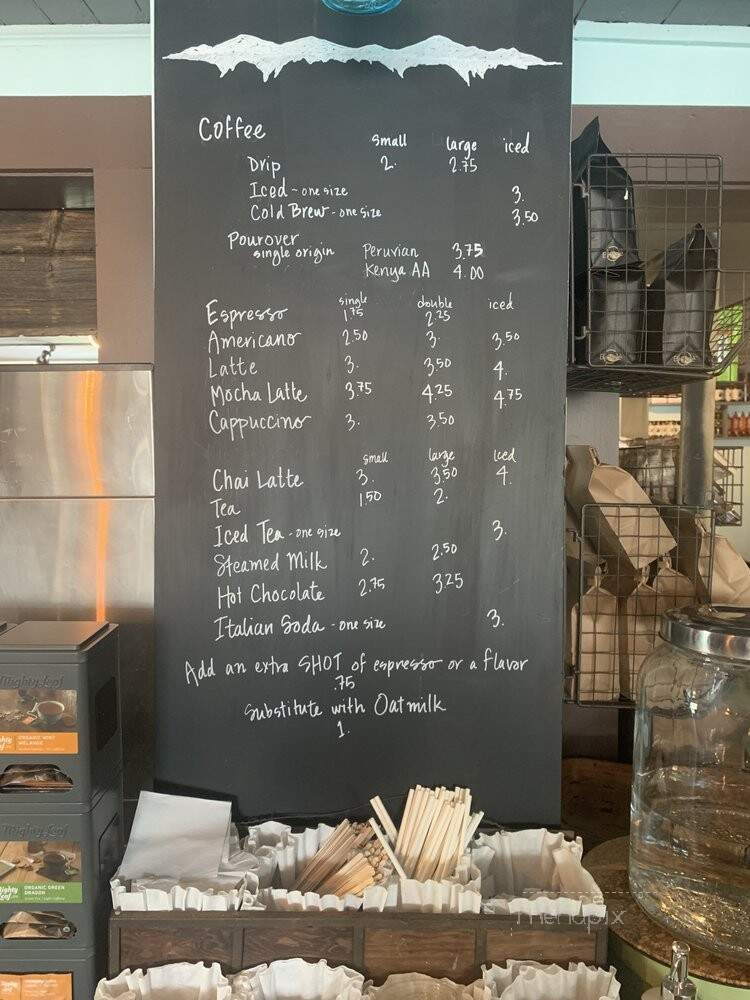 Coffee small large iced
Drip 2. 2.75
Iced - one size 3.
Cold Brew - one size 3.50
Pourover
single origin Peruvian 3.75
Kenya AA 4.00
single double iced
Espresso 1.75 2.25
Americano 2.50 3. 3.50
Latte 3. 3.50 4.
Mocha Latte 3.75 4.25 4.75
Cappuccino 3. 3.50
small large Iced
Chai Latte 3. 3.50 4.
Tea 1.50 2.
Iced Tea - one size 3.
Steamed Milk 2. 2.50
Hot Chocolate 2.75 3.25
Italian Soda - one size 3.
Add an extra SHOT of espresso or a flavor
.75
Substitute with Oatmilk
1.
Mighty Leaf
ORGANIC MINT
MELANGE
Mighty Leaf
ORGANIC GREEN
DRAGON
menupix